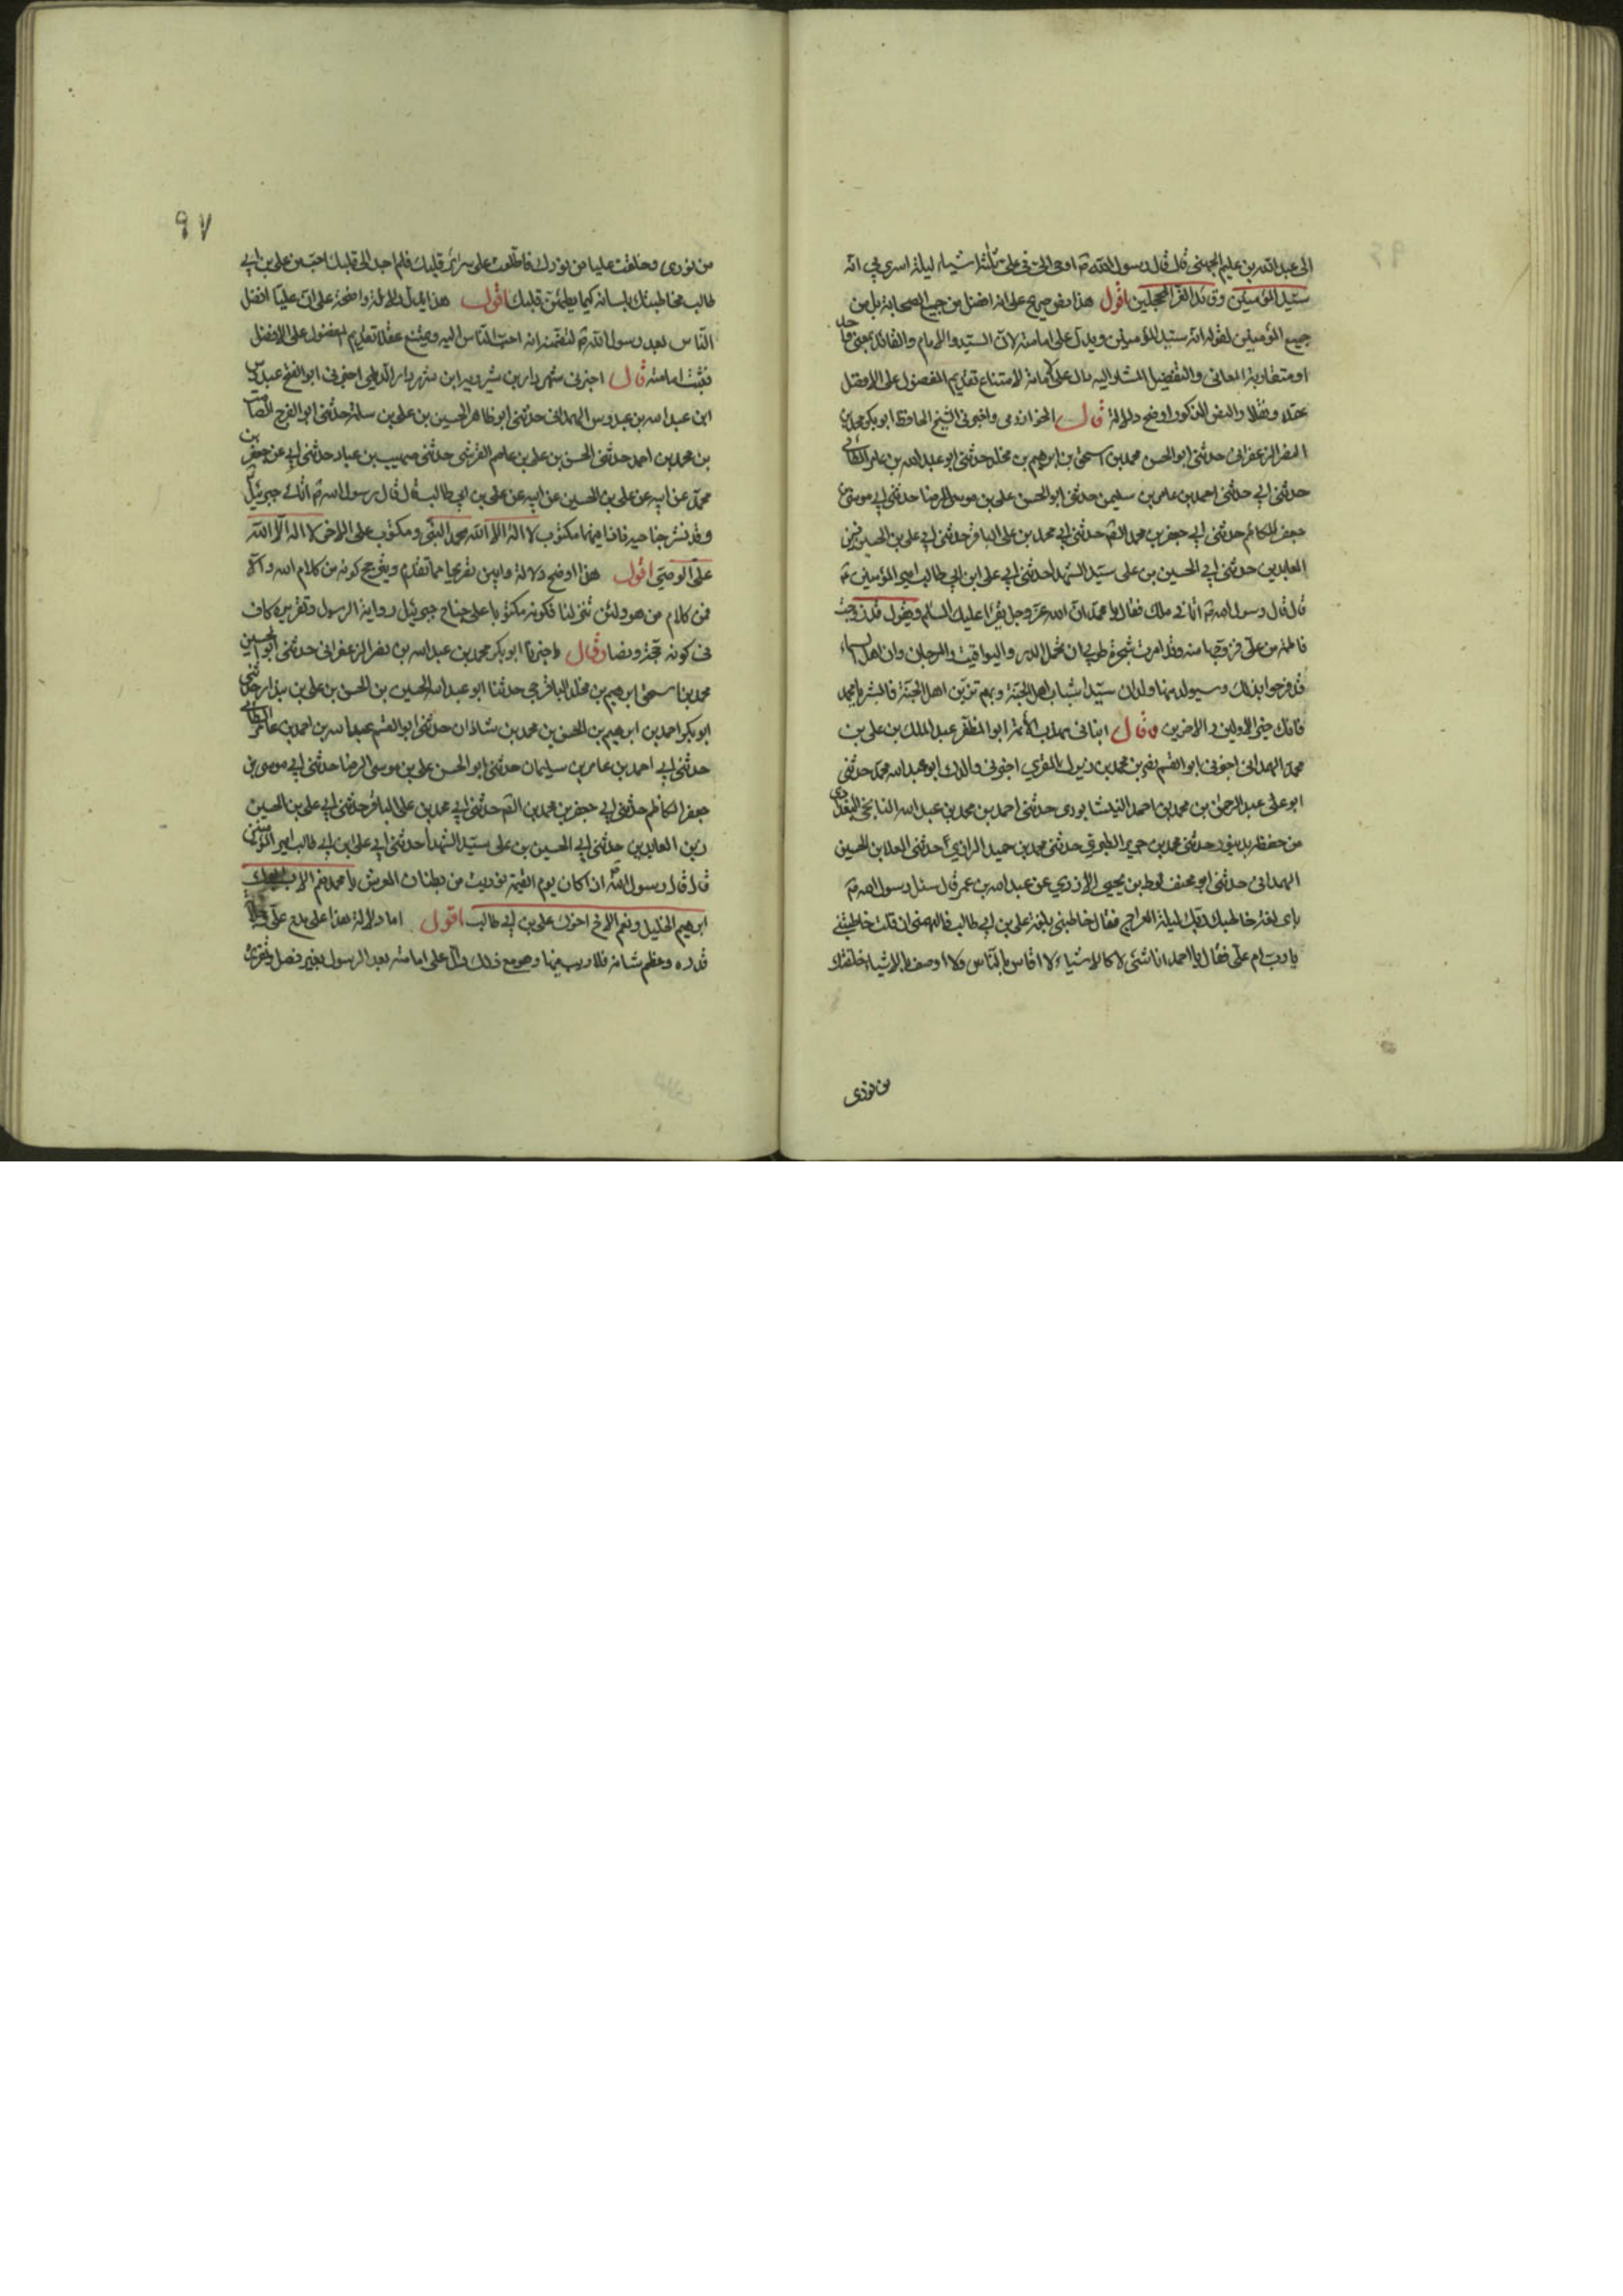 الى عبد الله بن عليم الجهنى قال قال رسول الله ص اوحى الىّ فى على ثلثة اشياء ليلة اسرى بى انّه
سيّد المؤمنين وقائد الغرّ المحجلين اقول هذا نص صريح على انه افضل من جميع الصحابة بل من
جميع المؤمنين لقوله انه سيّد المؤمنين ويدلّ على امامته لانّ السيّد والامام والقائد بمعنى واحد
او متقاربة المعانى والتفضيل المشار اليه دال على امامته لامتناع تقديم المفضول على الافضل
عقلا ونقلا والنص المذكور اوضح دلالة قال الخوارزمى واخبرنى الشيخ الحافظ ابو بكر محمد بن
النصر الزعفرانى حدثنى ابو الحسن محمد بن اسحق بن ابرهيم بن مخلد حدثنى ابو عبد الله بن عامر الطائى
حدثنى ابى حدثنى احمد بن عامر بن سليمن حدثنى ابو الحسن على بن موسى الرضا حدثنى ابى موسى بن
جعفر الكاظم حدثنى ابى جعفر بن محمد الصّ حدثنى ابى محمد بن على الباقر حدثنى ابى على بن الحسين زين
العابدين حدثنى ابى الحسين بن على سيّد الشهدا حدثنى ابى على ابن ابى طالب امير المؤمنين
قال قال رسول الله ص اتانى ملك فقال يا محمّد انّ الله عزّ وجل يقرأ عليك السّلم ويقول قد زوجت
فاطمة من علىّ فزوّجها منه وقد امرت شجرة طوبى ان تحمل الدر واليواقيت والمرجان وان اهل السماء
قد فرحوا بذلك وسيولد منها ولدان سيّدا شباب اهل الجنّة وبهم تزيّن اهل الجنّة فابشر يا محمد
فانك خير الاولين والاخرين وقال انبانى مهذب الائمة ابو المظفّر عبد الملك بن على بن
محمد الهمدانى اخبرنى ابو القسم نصر بن محمد بن زيرك المقرى اخبرنى والدك ابو عبد الله محمد حدثنى
ابو على عبد الرحمن بن محمد بن احمد النيشابورى حدثنى احمد بن محمد بن عبد الله النانجى البغدادى
من حفظه بدينور حدثنى محمد بن جرير الطبرى حدثنى محمد بن حميد الرازى حدثنى العلا بن الحسين
الهمدانى حدثنى ابو مخنف لوط بن يحيى الازدى عن عبد الله بن عمر قال سئل رسول الله ص
باى لغة خاطبك ربّك ليلة المعراج فقال خاطبنى بلغة على بن ابى طالب فالهمنى ان قلت خاطبتنى
يا ربّ ام علىّ فقال يا احمد انا شئ لا كالاشياء لا اقاس بالنّاس ولا اوصف بالاشياء خلقتك
من نورى
٩٧
من نورى وخلقت عليا من نورك فاطّلعت على سرائر قلبك فلم اجد الى قلبك احبّ من على بن ابى
طالب فخاطبتك بلسانه كيما يطمئن قلبك اقول هذا يدلّ دلالة واضحة على انّ عليّا افضل
النّاس بعد رسول الله ص لتضمنه انه احبّ النّاس اليه ويمتنع عقلا تقديم المفضول على الافضل
فثبت امامته قال اخبرنى شهردار بن شيرويه ابن شهردار الديلمى اخبرنى ابو الفتح عبدوس
ابن عبد الله بن عبدوس الهمدانى حدثنى ابو طاهر الحسين بن على بن سلمة حدثنى ابو الفرج الصامت
بن محمد بن احمد حدثنى الحسن بن على بن عاصم القرشى حدثنى صهيب بن عباد حدثنى ابى عن جعفر بن
محمّد عن ابيه عن على بن الحسين عن ابيه عن على بن ابى طالب قال قال رسول الله ص اتانى جبرئيل
وقد نشر جناحيه فاذا فيهما مكتوب لا اله الا الله محمد النبّى ومكتوب على الاخر لا اله الّا الله
علىّ الوصىّ اقول هذا اوضح دلالة وابين تصريحا مما تقدّم وتصريح كونه من كلام الله والّا
فمن كلام من هو ولئن تنزلنا فكونه مكتوبا على جناح جبرئيل رواية الرسول وتقريره كاف
فى كونه حجّة ونصا وقال واخبرنا ابو بكر محمد بن عبد الله بن نصر الزعفرانى حدثنى ابو الحسين
محمد بن اسحق ابرهيم بن مخلد الباقرحى حدثنا ابو عبد الله الحسين بن الحسن بن على بن بندار حدثنى
ابو بكر احمد بن ابرهيم بن الحسن بن محمد بن شاذان حدثنى ابو القسم عبد الله بن احمد بن عامر الطائى
حدثنى ابى احمد بن عامر بن سليمان حدثنى ابو الحسن على بن موسى الرضا حدثنى ابى موسى بن
جعفر الكاظم حدثنى ابى جعفر بن محمد بن الصّ حدثنى ابى محمد بن على الباقر حدثنى ابى على بن الحسين
زين العابدين حدثنى ابى الحسين بن على سيّد الشهدا حدثنى ابى على ابن ابى طالب امير المؤمنين
قال قال رسول الله ص اذا كان يوم القيمة نوديت من بطنان العرش يا محمد نعم الاب ابوك
ابرهيم الخليل ونعم الاخ اخوك على بن ابى طالب اقول اما دلالة هذا على مدح علىّ وجلالة
قدره وعظم شانه فلا ريب فيها وهو مع ذلك دالّ على امامته بعد الرسول بغير فصل